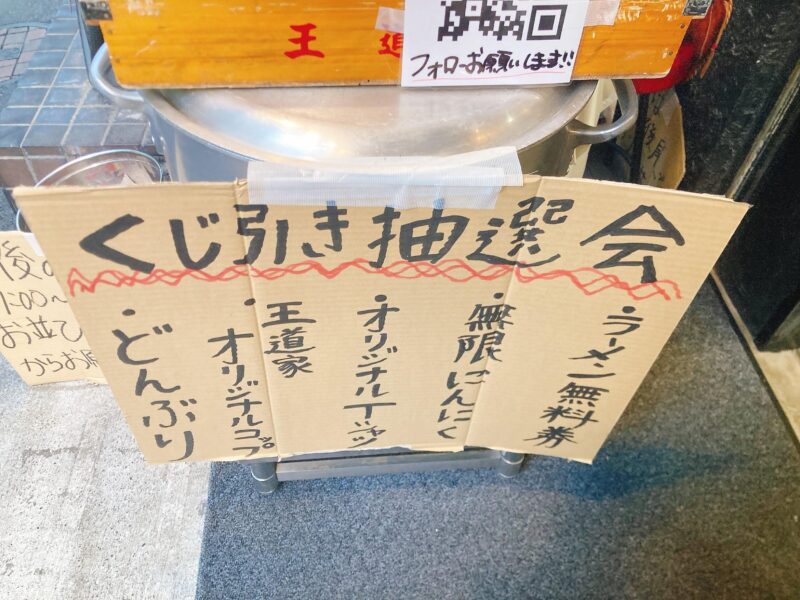 王道
フォローお願いします!!
くじ引き抽選会
・ラーメン無料券
・無限にんにく
・オリジナルTシャツ
王道家
・オリジナルコップ
・どんぶり
1:00〜
お並び
からお